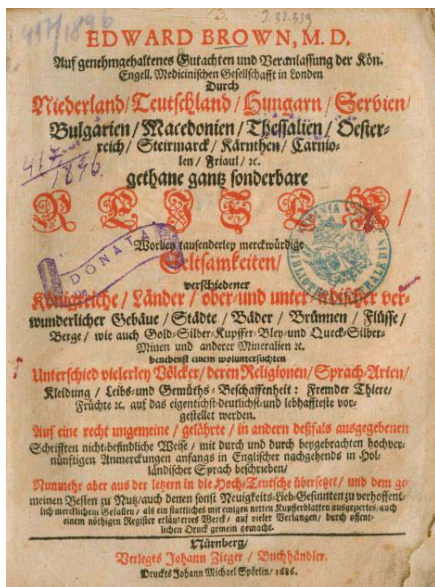 417/1896
J. 32.339
EDWARD BROWN, M. D.
Auf genehmgehaltenes Gutachten und Veranlassung der Kön.
Engell. Medicinischen Gesellschafft in Londen
Durch
Niederland/Teutschland/Hungarn/Serbien/
Bulgarien/Macedonien/Thessalien/Oester-
reich/Steirmarck/Kärnthen/Carnio-
len/Friaul/ꝛc.
417/1896
gethane gantz sonderbare
REISEN/
DONATA
Worin tausenderley merckwürdige
Seltsamkeiten/
verschiedener
Königreiche/Länder/ober-und unter-irdischer ver-
wunderlicher Gebäue/Städte/Bäder/Brünnen/Flüsse/
Berge/wie auch Gold-Silber-Kupffer-Bley-und Queck-Silber-
Minen und anderer Mineralien ꝛc.
benebenst einem woluntersuchten
Unterschied vielerley Völcker/deren Religionen/Sprach-Arten/
Kleidung/Leibs-und Gemüths-Beschaffenheit: Fremder Thiere/
Früchte ꝛc. auf das eigentlichst-deutlichst-und lebhaffteste vor-
gestellet werden.
Auf eine recht ungemeine/gelährte/in andern deßfals ausgegebenen
Schrifften nicht-befindliche Weise/mit durch und durch beygebrachten hochver-
nünftigen Anmerckungen anfangs in Englischer nachgehends in Hol-
ländischer Sprach beschrieben/
Nunmehr aber aus der letzern in die Hoch-Teutsche übersetzet/und dem ge-
meinen Besten zu Nutz/auch denen sonst Neuigkeits-Lieb-Gesinnten zu verhoffent-
lich mercklichem Gefallen/als ein stattliches mit einigen netten Kupferblatten ausgeziertes/auch
einem nöthigen Register erläutertes Werck/auf vieler Verlangen/durch öffent-
lichen Druck gemein gemacht.
Nürnberg/
Verlegts Johann Zieger/Buchhändler.
Druckts Johann Michael Spörlin/1686.